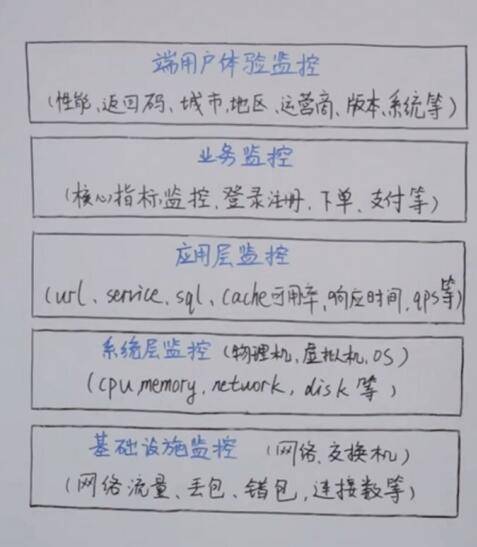 端用户体验监控
(性能、返回码、城市、地区、运营商、版本、系统等)
业务监控
(核心指标监控、登录注册、下单、支付等)
应用层监控
(url、service、sql、cache可用率、响应时间、qps等)
系统层监控(物理机、虚拟机、OS)
(cpu、memory、network、disk等)
基础设施监控 (网络、交换机)
(网络流量、丢包、错包、连接数等)